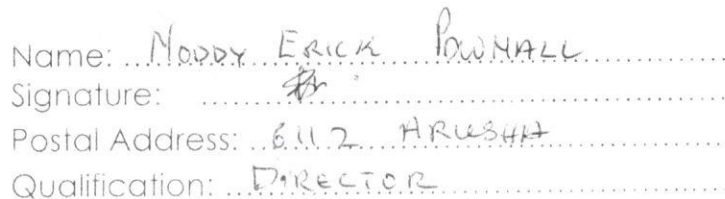 Name: Moddy Erick Pownall
Signature:
Postal Address: 6112 ARUSHA
Qualification: DIRECTOR